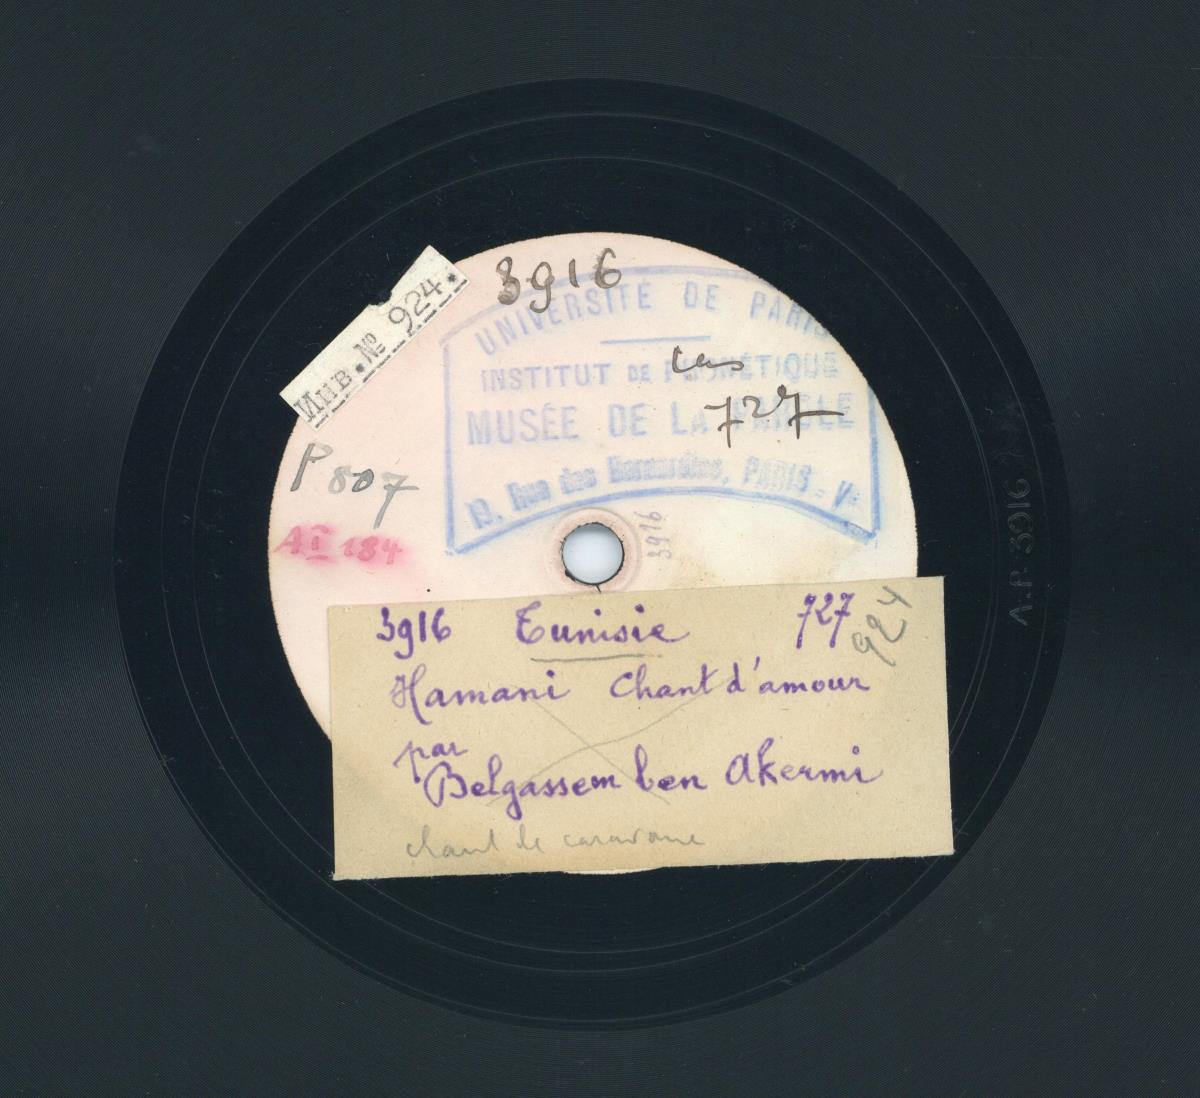 3916
MHB. Nº 924.
UNIVERSITÉ DE PARIS
INSTITUT DE PHONÉTIQUE
MUSÉE DE LA PAROLE
19, Rue des Bernardins, PARIS - Vᵉ
727
P 807
AI 184
3916
3916 Tunisie 727
924
Hamani Chant d'amour
par
Belgassem ben Akermi
chant de caravane
A.P. 3916